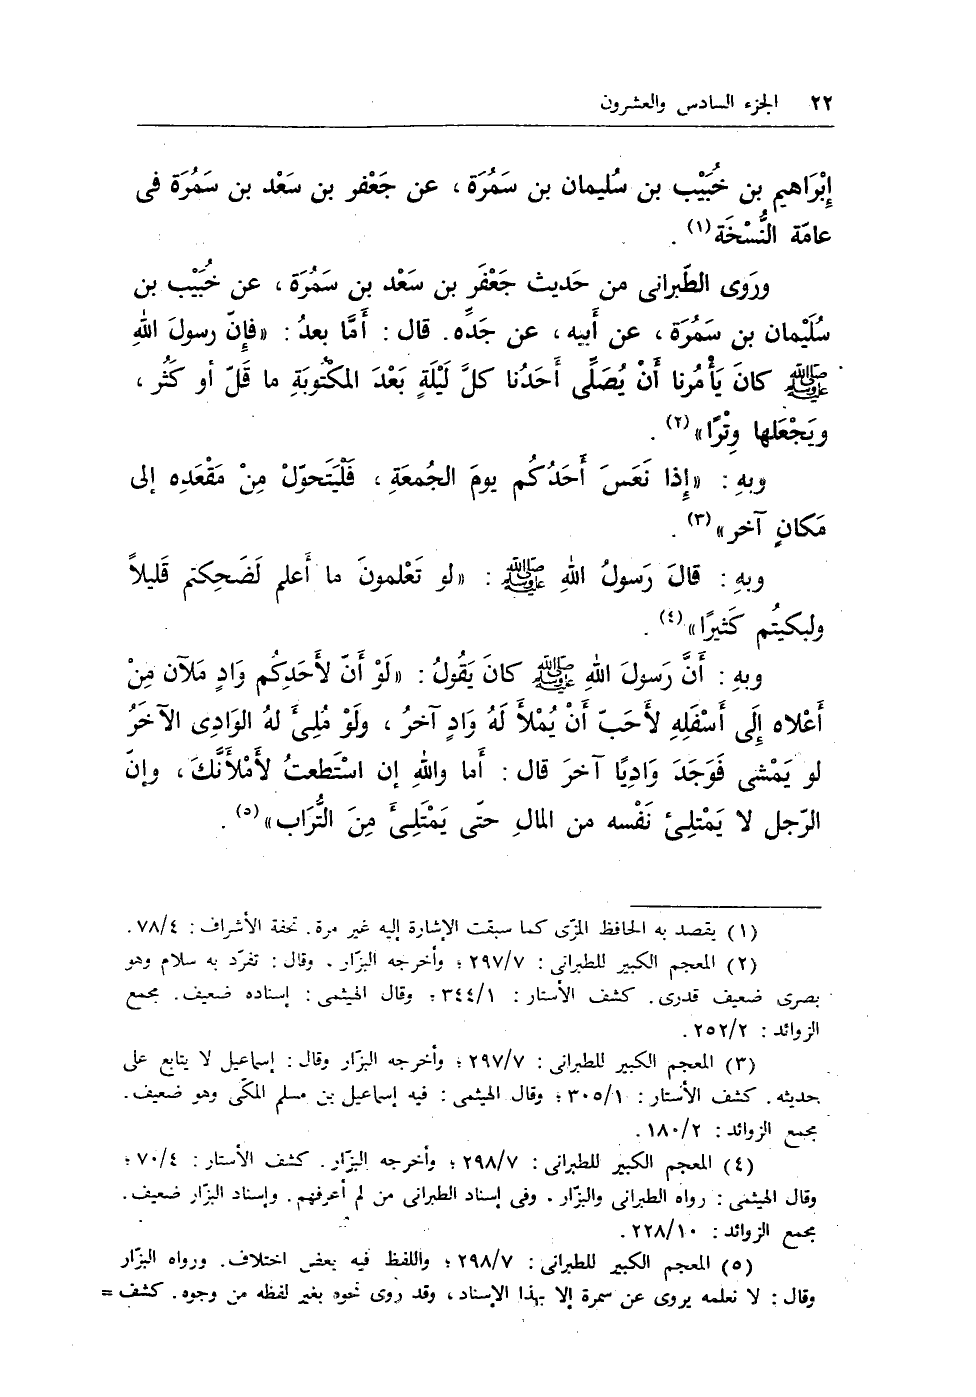 ٢٢ الجزء السادس والعشرون
إِبْرَاهيم بن خُبَيْب بن سُليمان بن سَمُرَة ، عن جَعْفر بن سَعْد بن سَمُرَة فى
عامّة النُّسْخَة (١) .
ورَوى الطّبرانى من حَديث جَعْفَر بن سَعْد بن سَمُرَة ، عن خُبَيْب بن
سُلَيْمان بن سَمُرَة ، عن أَبيه ، عن جَدِّه. قال : أَمَّا بعدُ : «فإِنّ رسولَ اللهِ
ﷺ كانَ يَأْمُرنا أَنْ يُصَلِّى أَحَدُنا كلَّ لَيْلَةٍ بَعْدَ المكْتُوبَةِ ما قَلّ أو كَثُر ،
ويَجْعَلها وِتْرًا» (٢) .
وبهِ : «إِذا نَعَسَ أَحَدُكُم يومَ الجُمعَةِ ، فَلْيَتَحوّلْ مِنْ مَقْعَدِه إلى
مَكانٍ آخر» (٣) .
وبهِ : قالَ رَسولُ اللهِ ﷺ : «لو تَعْلمونَ ما أَعلم لَضَحِكتم قَليلاً
ولبكيتُم كَثيرًا» (٤) .
وبهِ : أَنَّ رَسولَ اللهِ ﷺ كانَ يَقُولُ : «لَوْ أَنّ لأَحَدِكُم وَادٍ مَلآن مِنْ
أَعْلاه إِلَى أَسْفَلِهِ لأَحَبّ أَنْ يُمْلأَ لَهُ وَادٍ آخرُ ، ولَوْ مُلِئَ لهُ الوَادِى الآخَرُ
لو يَمْشى فَوَجَدَ وَادِيًا آخرَ قال : أَما واللهِ إن اسْتَطعتُ لأَمْلأَنَّكَ ، وإنّ
الرّجل لا يَمْتلِئ نَفْسه من المالِ حتّى يَمْتَلِئَ مِنَ التُّرَاب» (٥) .
(١) يقصد به الحافظ المزّى كما سبقت الإشارة إليه غير مرة. تحفة الأشراف : ٧٨/٤ .
(٢) المعجم الكبير للطبرانى : ٢٩٧/٧ ؛ وأخرجه البزّار . وقال : تفرّد به سلام وهو
بصرى ضعيف قدرى. كشف الأستار : ٣٤٤/١ ؛ وقال الهيثمى : إسناده ضعيف. مجمع
الزوائد : ٢٥٢/٢ .
(٣) المعجم الكبير للطبرانى : ٢٩٧/٧ ؛ وأخرجه البزّار وقال : إسماعيل لا يتابع على
حديثه. كشف الأستار : ٣٠٥/١ ؛ وقال الهيثمى : فيه إسماعيل بن مسلم المكّى وهو ضعيف.
مجمع الزوائد : ١٨٠/٢ .
(٤) المعجم الكبير للطبرانى : ٢٩٨/٧ ؛ وأخرجه البزّار. كشف الأستار : ٧٠/٤ ؛
وقال الهيثمى : رواه الطبرانى والبزّار . وفى إسناد الطبرانى من لم أعرفهم. وإسناد البزّار ضعيف.
مجمع الزوائد : ٢٢٨/١٠ .
(٥) المعجم الكبير للطبرانى : ٢٩٨/٧ ؛ واللفظ فيه بعض اختلاف. ورواه البزّار
وقال : لا نعلمه يروى عن سمرة إلا بهذا الإسناد ، وقد روى نحوه بغير لفظه من وجوه. كشف =